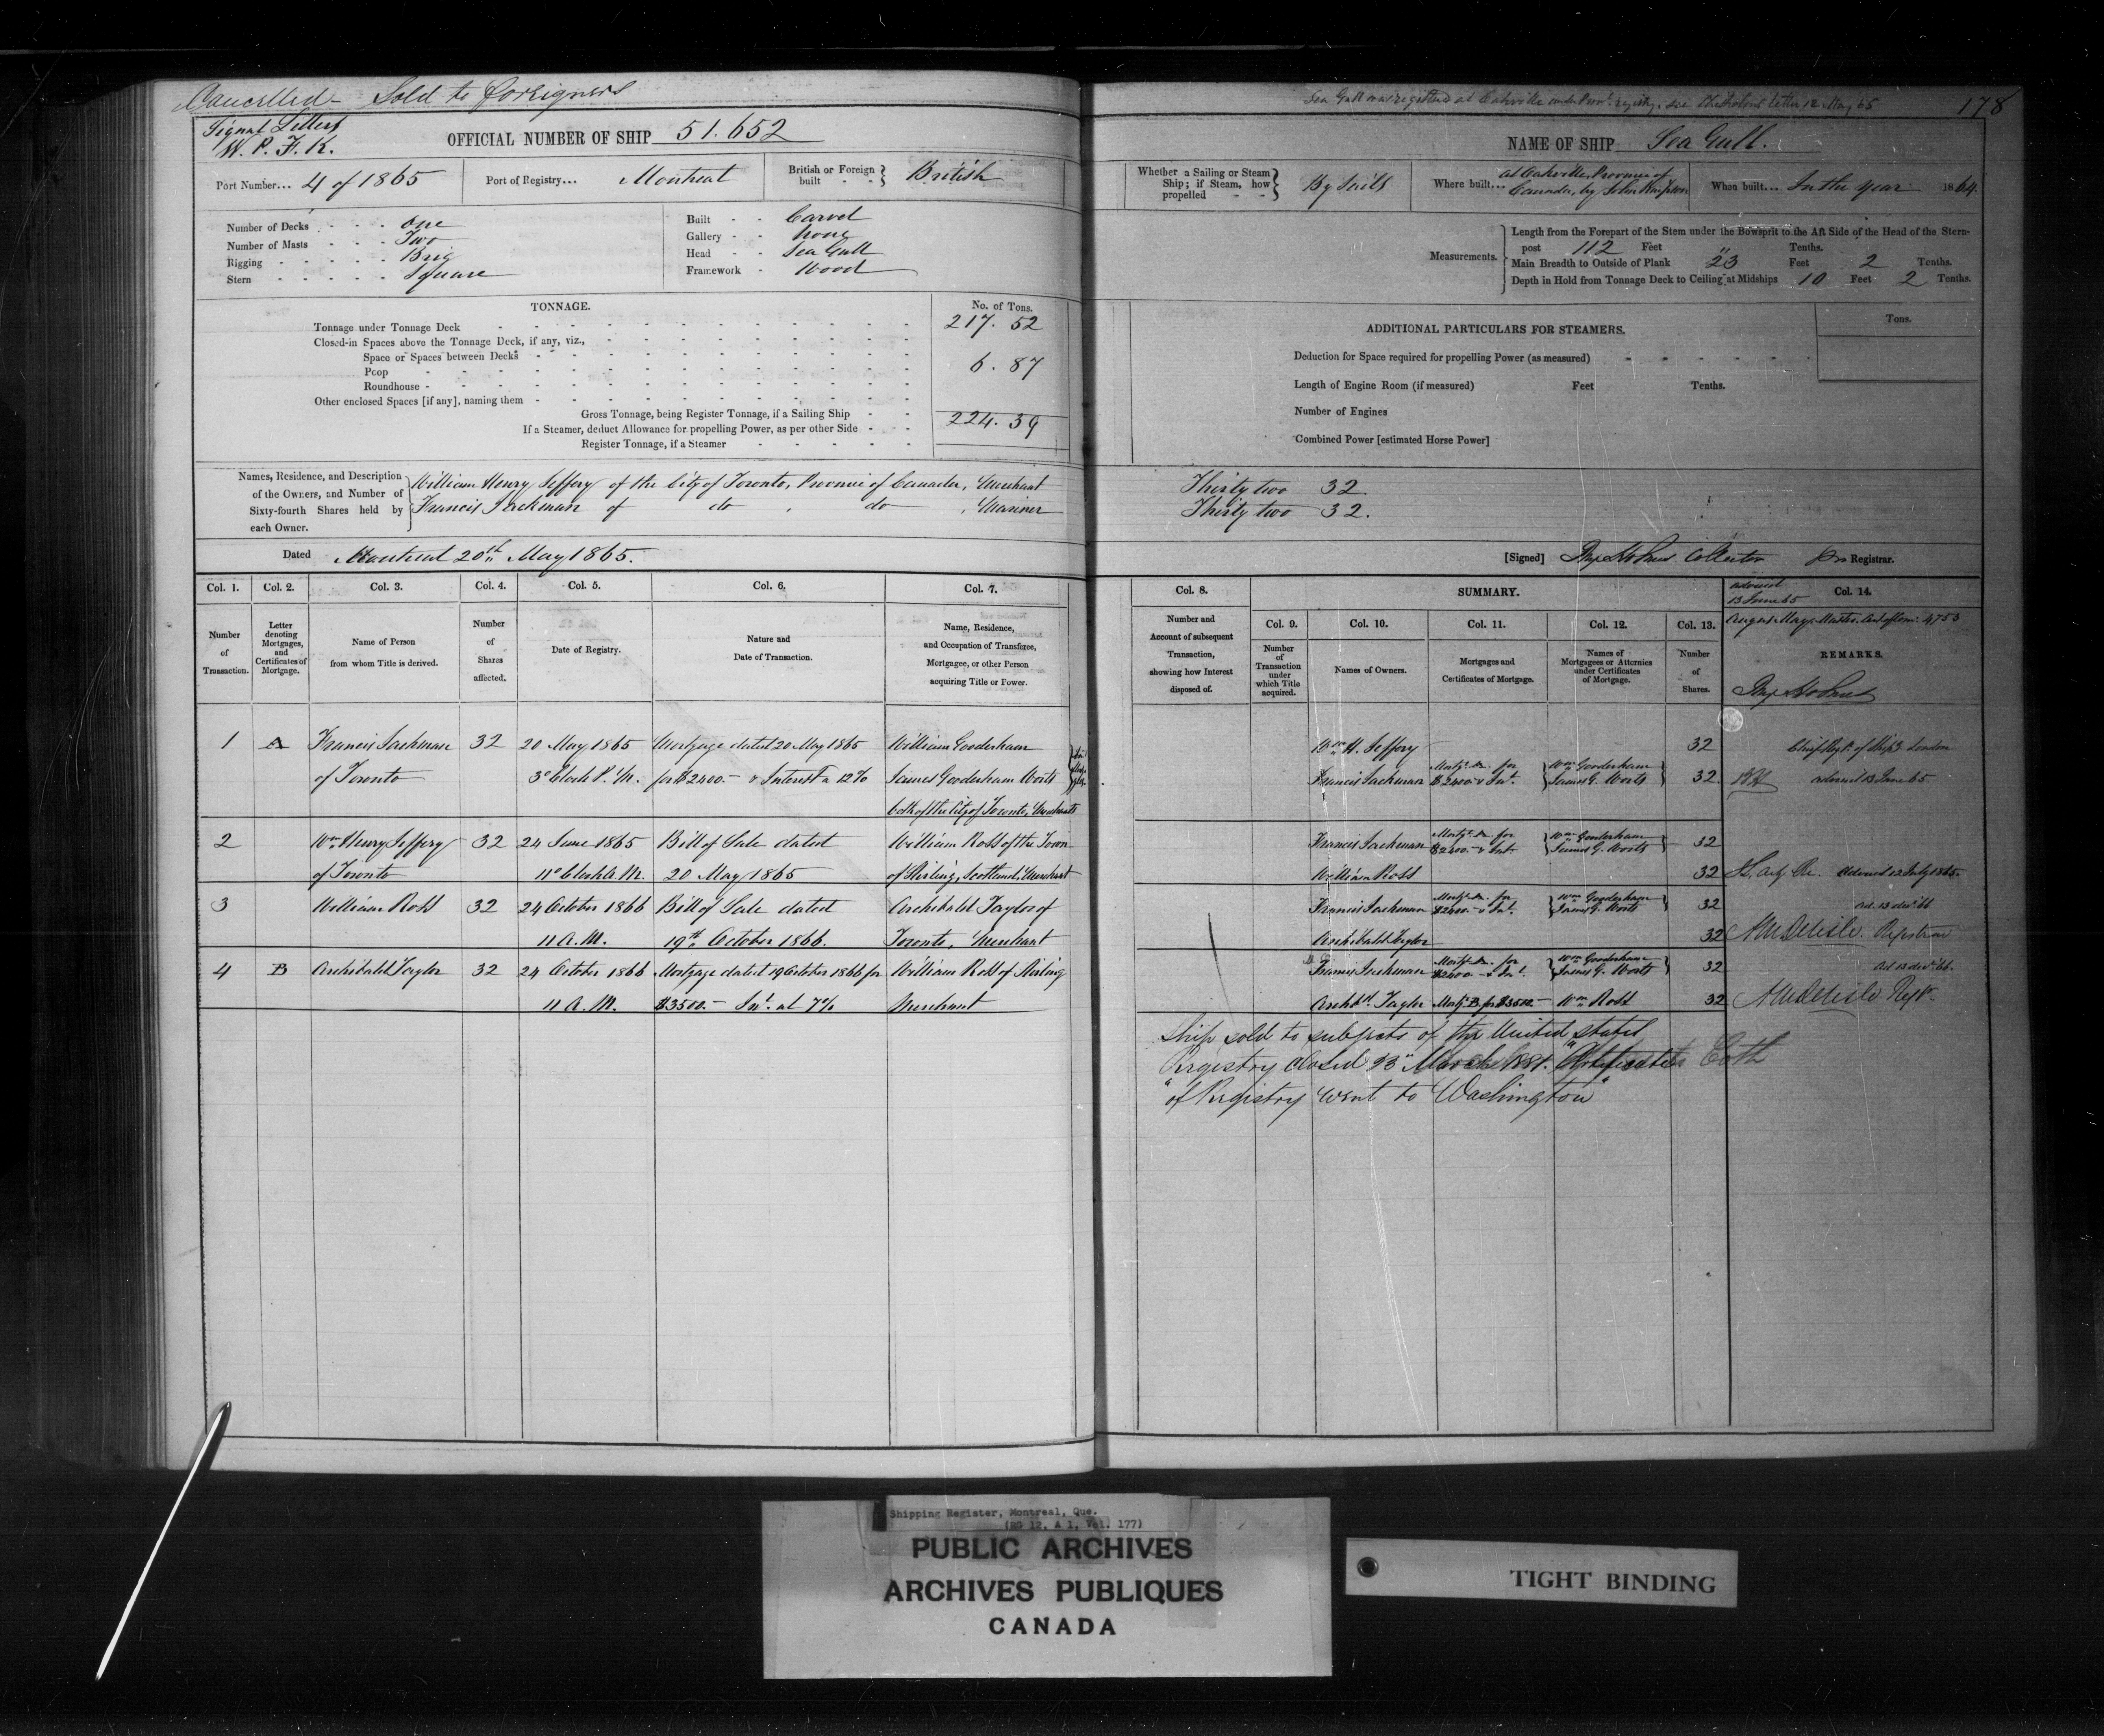 Cancelled - Sold to foreigners
Signal Letters
W. P. F. K.
OFFICIAL NUMBER OF SHIP 51.652
Port Number... 4 of 1865 Port of Registry... Montreal British or Foreign built - - } British
Number of Decks - - - One
Number of Masts - - - Two
Rigging - - - - - Brig
Stern - - - - - Square
Built - - Carvel
Gallery - - None
Head - - Sea Gull
Framework - Wood
TONNAGE. No. of Tons.
Tonnage under Tonnage Deck 217.52
Closed-in Spaces above the Tonnage Deck, if any, viz.,
Space or Spaces between Decks
Poop 6.87
Roundhouse
Other enclosed Spaces [if any], naming them
Gross Tonnage, being Register Tonnage, if a Sailing Ship 224.39
If a Steamer, deduct Allowance for propelling Power, as per other Side
Register Tonnage, if a Steamer
Names, Residence, and Description of the Owners, and Number of Sixty-fourth Shares held by each Owner.
William Henry Jeffery of the City of Toronto, Province of Canada, Merchant
Francis Jackman of do , do , Mariner
Dated Montreal 20th May 1865.
Col. 1. Col. 2. Col. 3. Col. 4. Col. 5. Col. 6. Col. 7.
Number of Transaction.
Letter denoting Mortgages, and Certificates of Mortgage.
Name of Person from whom Title is derived.
Number of Shares affected.
Date of Registry.
Nature and Date of Transaction.
Name, Residence, and Occupation of Transferee, Mortgagee, or other Person acquiring Title or Power.
1 A Francis Jackman 32 20 May 1865 Mortgage dated 20 May 1865 William Gooderham
of Toronto 3 o'Clock P.M. for $2400.- & Interest a 12% James Gooderham Worts
both of the City of Toronto, Merchants
2 Wm Henry Jeffery 32 24 June 1865 Bill of Sale dated William Ross of the Town
of Toronto 11 o'Clock A.M. 20 May 1865 of Stirling, Scotland, Merchant
3 William Ross 32 24 October 1866 Bill of Sale dated Archibald Taylor of
11 A.M. 19th October 1866. Toronto, Merchant
4 B Archibald Taylor 32 24 October 1866 Mortgage dated 19 October 1866 for William Ross of Stirling
11 A.M. $3500.- Int. at 7% Merchant
Sea Gull was registered at Oakville under Provl. registry, see letter 12 May 65
178
NAME OF SHIP Sea Gull.
Whether a Sailing or Steam Ship; if Steam, how propelled - - } By Sails
Where built... at Oakville, Province of Canada, by John Simpson
When built... In the year 1864.
Measurements.
Length from the Forepart of the Stem under the Bowsprit to the Aft Side of the Head of the Stern-
post 112 Feet " Tenths.
Main Breadth to Outside of Plank 23 Feet 2 Tenths.
Depth in Hold from Tonnage Deck to Ceiling at Midships 10 Feet 2 Tenths.
ADDITIONAL PARTICULARS FOR STEAMERS. Tons.
Deduction for Space required for propelling Power (as measured)
Length of Engine Room (if measured) Feet Tenths.
Number of Engines
Combined Power [estimated Horse Power]
Thirty two 32.
Thirty two 32.
[Signed] Collector Registrar.
Col. 8. SUMMARY. Col. 14.
Number and Account of subsequent Transaction, showing how Interest disposed of.
Col. 9. Col. 10. Col. 11. Col. 12. Col. 13.
Number of Transaction under which Title acquired.
Names of Owners.
Mortgages and Certificates of Mortgage.
Names of Mortgagees or Attornies under Certificates of Mortgage.
Number of Shares.
advised
13 June 65
Master. 4753
REMARKS.
Wm H. Jeffery 32 London
Francis Jackman Mortg. A. for $2400.- & Int. Wm Gooderham James G. Worts 32 advised 13 June 65
Francis Jackman Mortg. A. for $2400.- & Int. Wm Gooderham James G. Worts 32
William Ross 32 Advised 12 July 1865.
Francis Jackman Mortg. A. for $2400.- & Int. Wm Gooderham James G. Worts 32 Ad. 13 dec. 66
Archibald Taylor 32 Delisle Registrar
Francis Jackman Mortg. A. for $2400.- & Int. Wm Gooderham James G. Worts 32 Ad 13 dec. 66.
Archbd. Taylor Mortg. B for $3500.- Wm Ross 32 Delisle Regr.
Ship sold to subjects of the United States
Registry closed 23" March 1881. "Certificate
"of Registry went to Washington"
Shipping Register, Montreal, Que.
(RG 12, A 1, Vol. 177)
PUBLIC ARCHIVES
ARCHIVES PUBLIQUES
CANADA
TIGHT BINDING